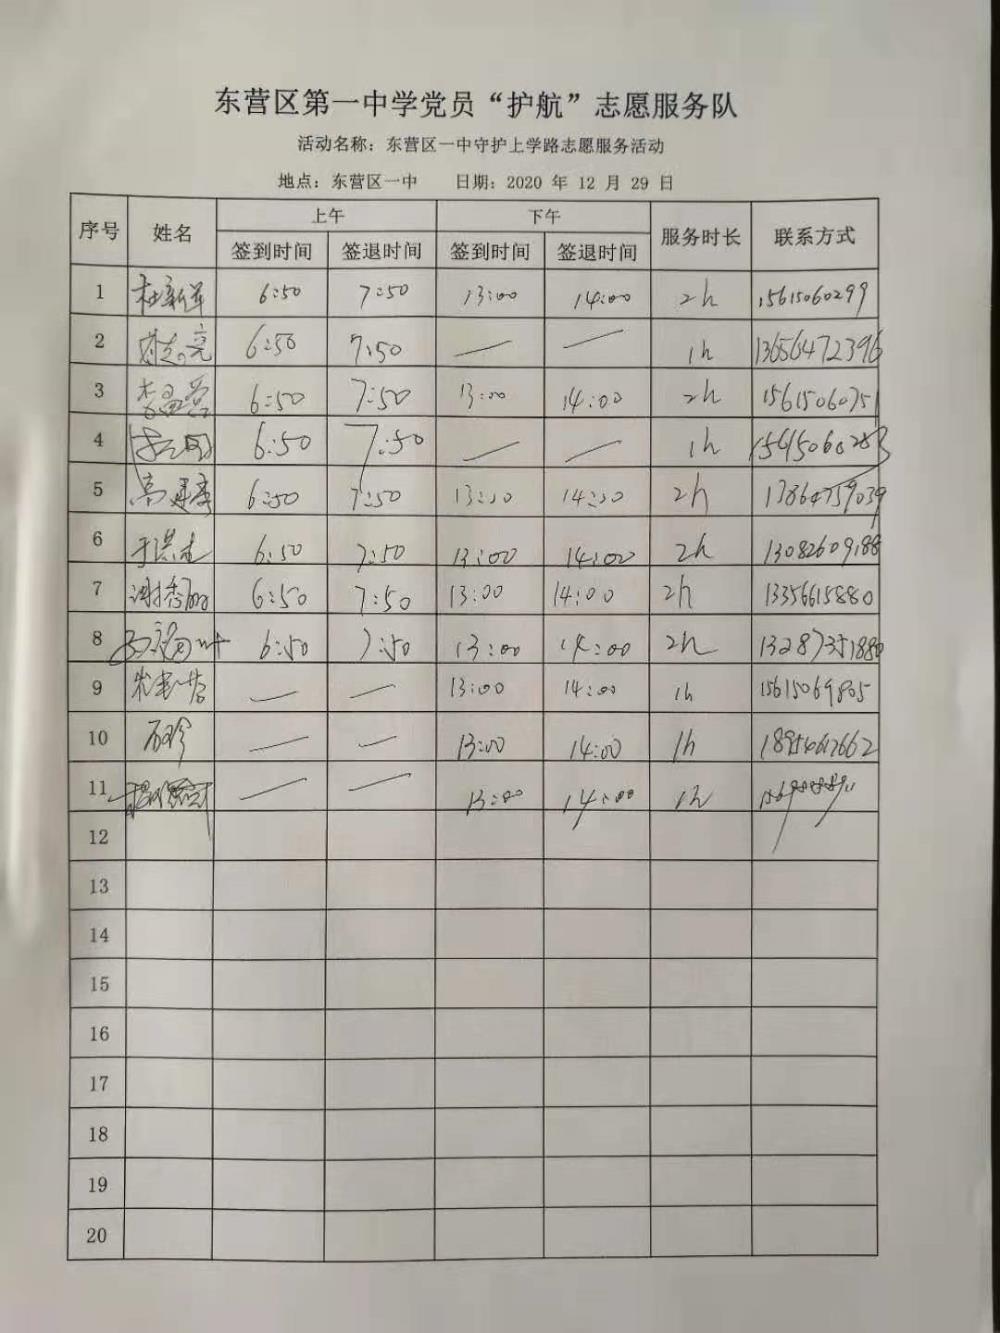 东营区第一中学党员“护航”志愿服务队
活动名称：东营区一中守护上学路志愿服务活动
地点：东营区一中 日期：2020 年 12 月 29 日
序号 姓名 上午 下午 服务时长 联系方式
签到时间 签退时间 签到时间 签退时间
1 杜新军 6:50 7:50 13:00 14:00 2h 15615060299
2 6:50 7:50 — — 1h 13656472396
3 李盈营 6:50 7:50 13:00 14:00 2h 15615060751
4 6:50 7:50 — — 1h
5 6:50 7:50 13:00 14:00 2h 13864759039
6 6:50 7:50 13:00 14:00 2h 13082609188
7 谢秀丽 6:50 7:50 13:00 14:00 2h 13356615880
8 6:50 7:50 13:00 14:00 2h 13287351880
9 — — 13:00 14:00 1h 15615069805
10 石珍 — — 13:00 14:00 1h
11 — — 13:00 14:00 1h
12
13
14
15
16
17
18
19
20